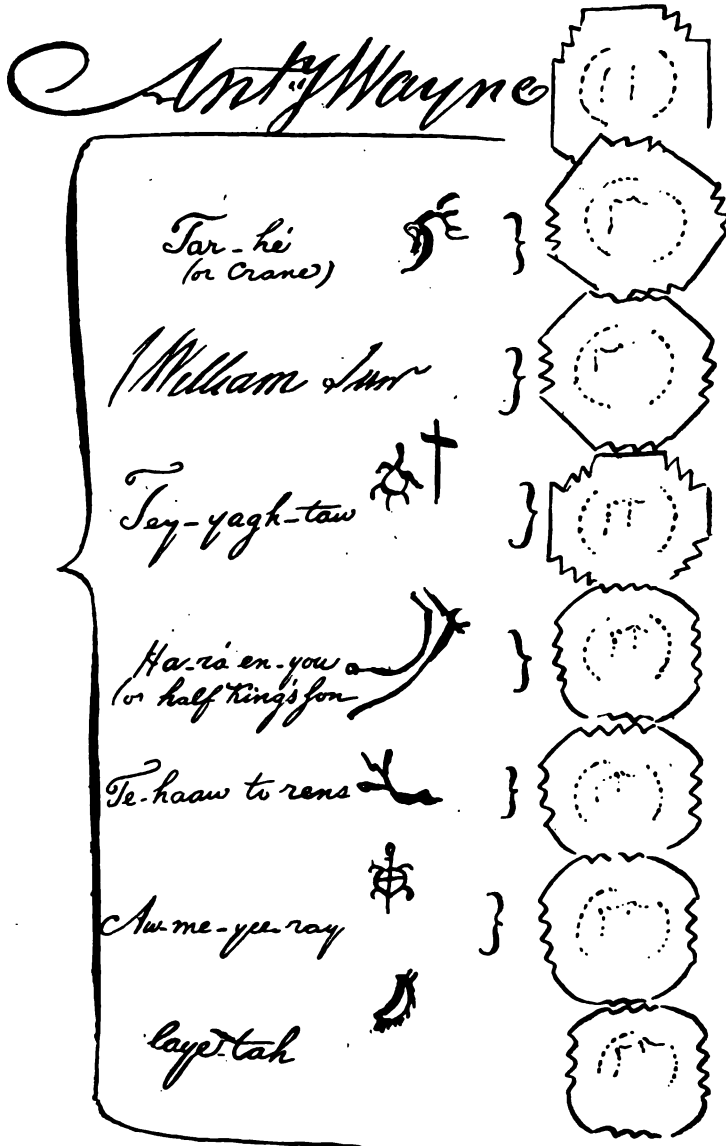 Anty Wayne
Tar-hé
(or Crane)
William
Tey-yagh-taw
Ha-ró en-you
(or half King's Son
Te-haaw to rens
Aw-me-yee-ray
laye-tah